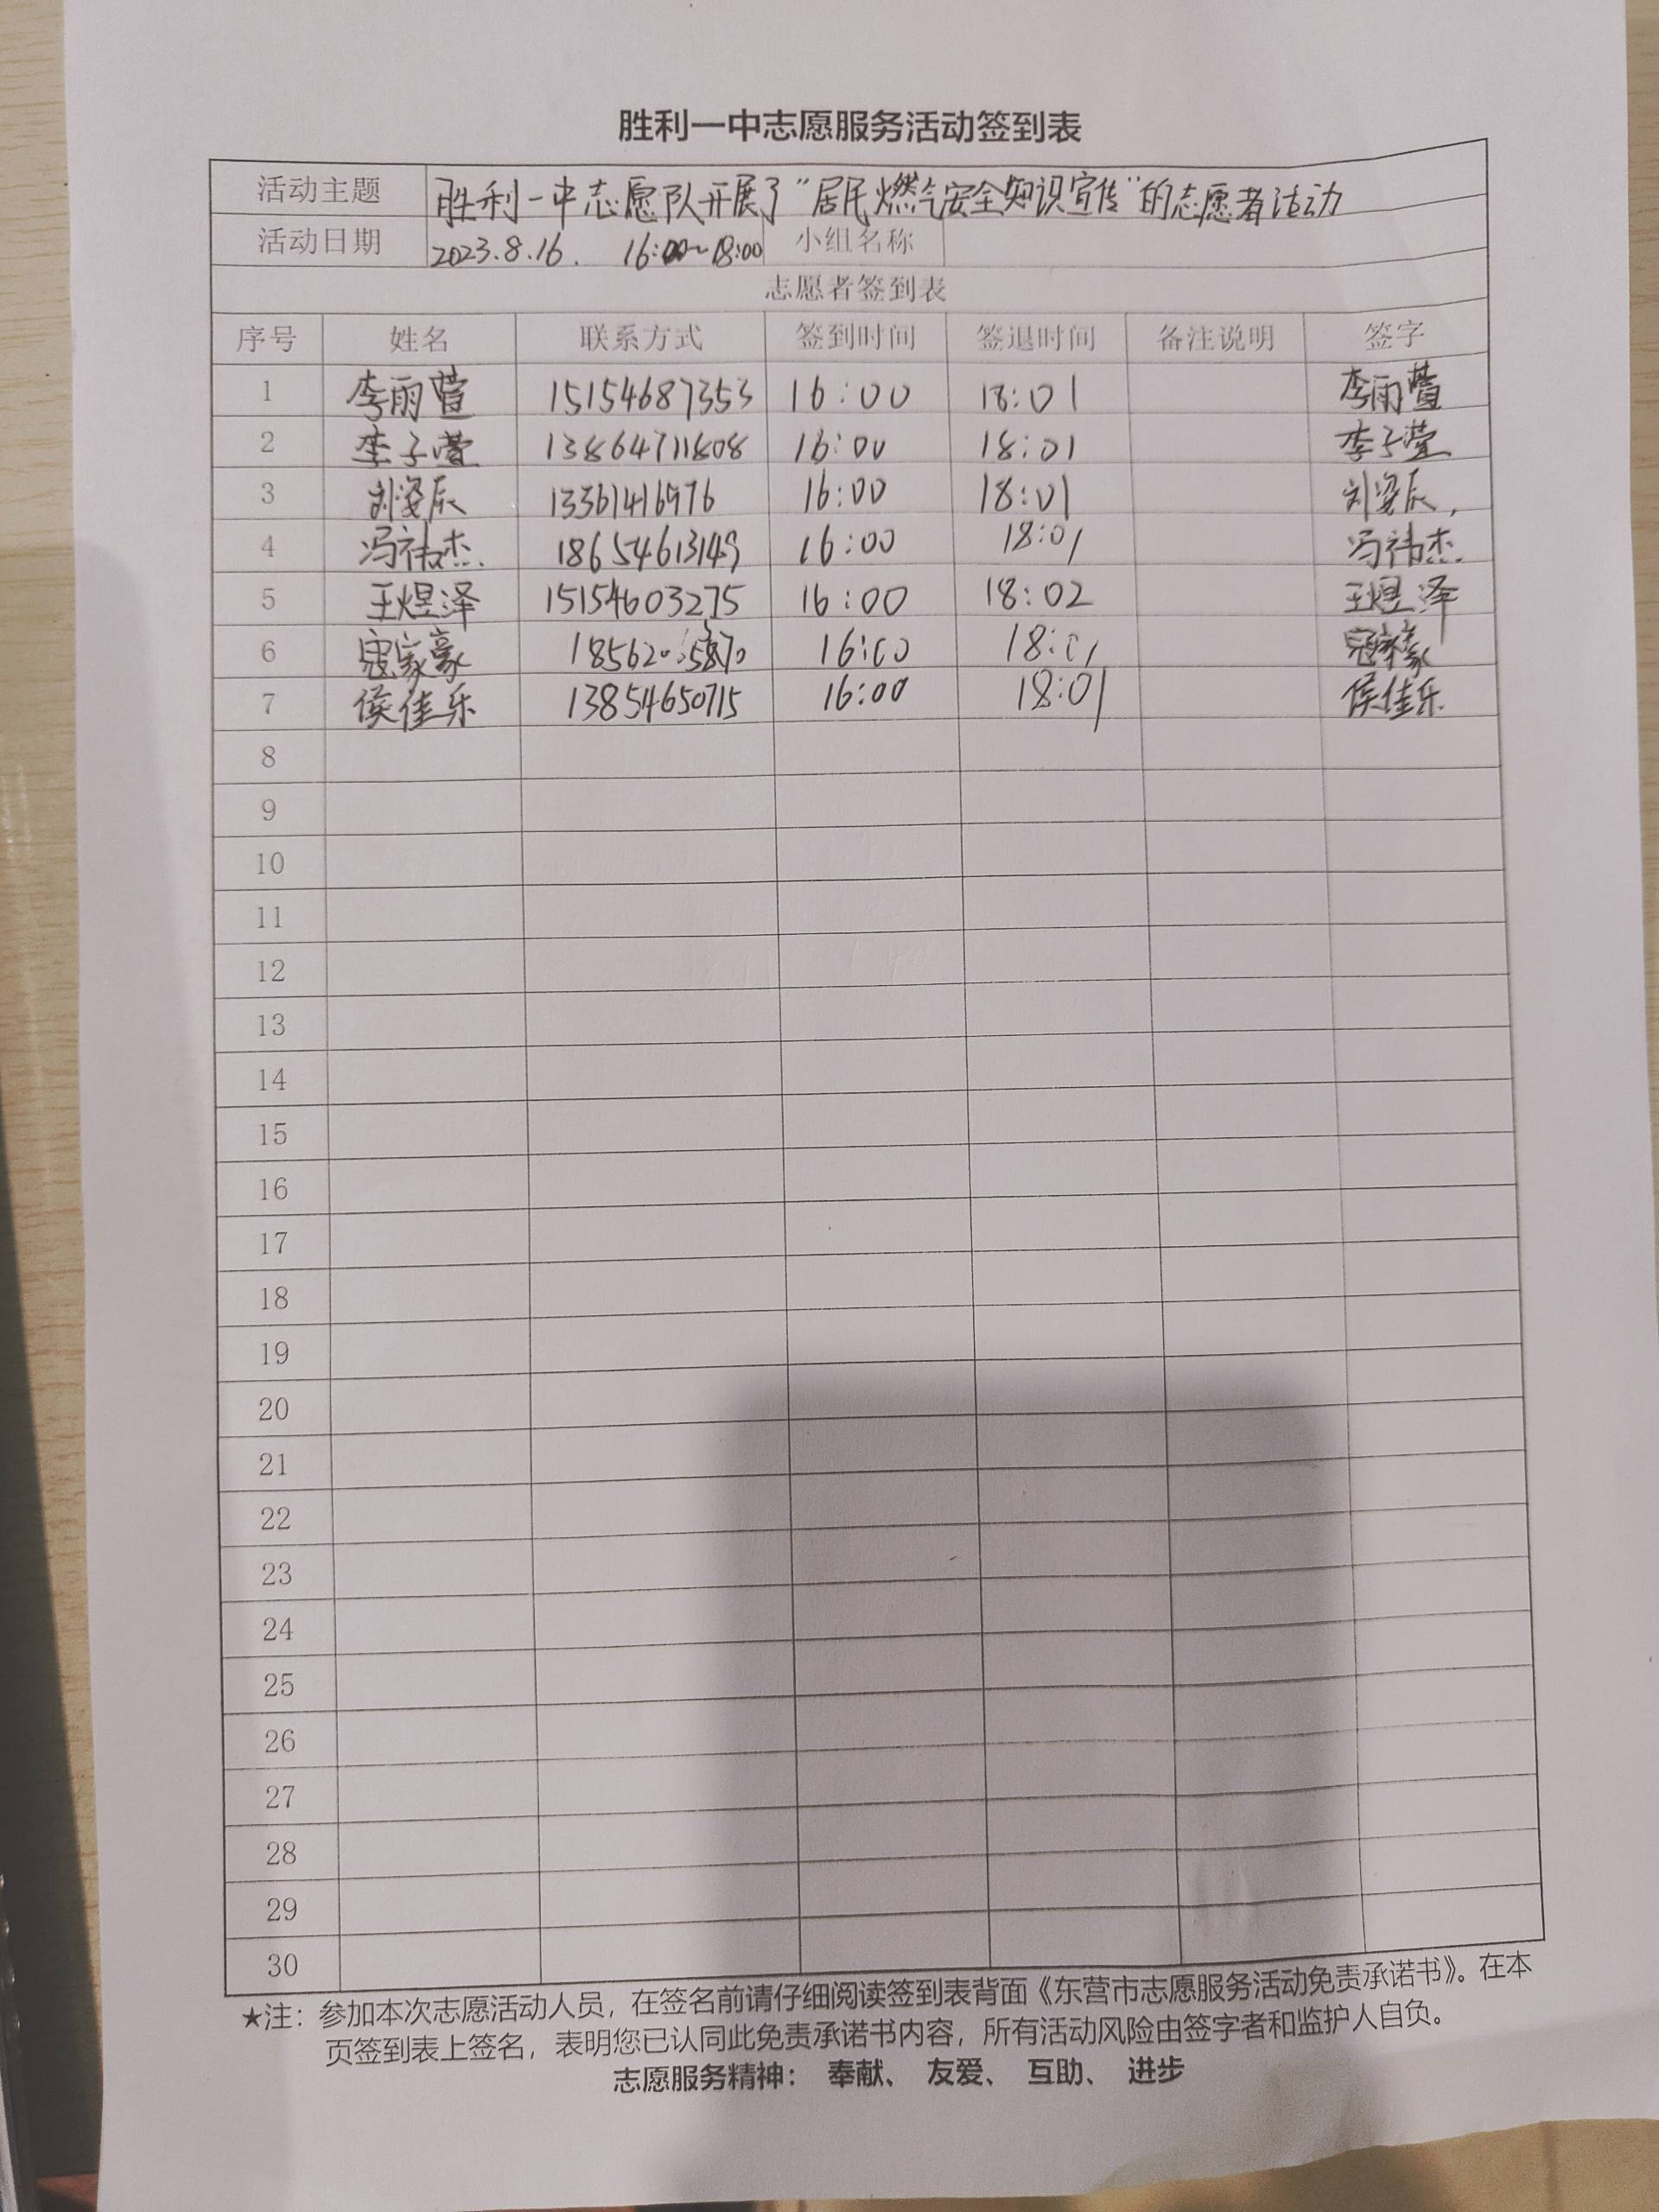 胜利一中志愿服务活动签到表
活动主题 胜利一中志愿队开展了“居民燃气安全知识宣传”的志愿者活动
活动日期 2023.8.16. 16:00~18:00 小组名称
志愿者签到表
序号 姓名 联系方式 签到时间 签退时间 备注说明 签字
1 李雨萱 15154687353 16:00 18:01 李雨萱
2 李子萱 13864711808 16:00 18:01 李子萱
3 刘姿辰 13361416976 16:00 18:01 刘姿辰,
4 冯祎杰. 18654613149 16:00 18:01 冯祎杰.
5 王煜泽 15154603275 16:00 18:02 王煜泽
6 寇家豪 16:00 18:01 寇家豪
7 侯佳乐 13854650715 16:00 18:01 侯佳乐
8
9
10
11
12
13
14
15
16
17
18
19
20
21
22
23
24
25
26
27
28
29
30
★注：参加本次志愿活动人员，在签名前请仔细阅读签到表背面《东营市志愿服务活动免责承诺书》。在本
页签到表上签名，表明您已认同此免责承诺书内容，所有活动风险由签字者和监护人自负。
志愿服务精神： 奉献、 友爱、 互助、 进步